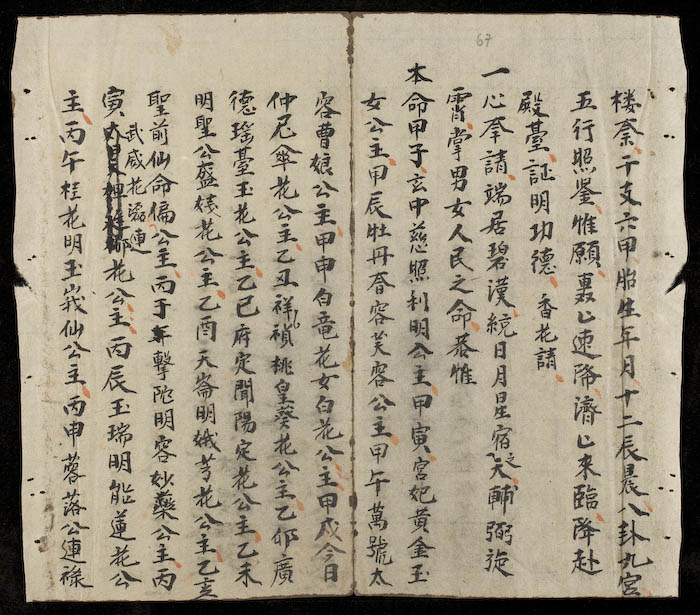 67
楼奈干支六甲胎生年月十二辰晨八卦九宮
五行照鉴惟願裏山速降濟山來臨降赴
殿臺証明功德 香花請
一心奉請端居碧漢統日月星宿之天輔弼施
霄掌男女人民之命恭惟
本命甲子玄中慈照利明公主甲寅宮妃黄金玉
女公主甲辰牡丹春容芙容公主甲午萬號太
容曹娘公主甲申白竜花女白花公主甲戌今日
仲尼傘花公主乙丑祥禎桃皇葵花公主乙卯廣
德瑶臺玉花公主乙巳府定聞陽定花公主乙未
明聖公盛娥花公主乙酉天嵩明娥芩花公主乙亥
聖前仙命偏公主丙子年擊陀明容妙藥公主丙
寅武威花滛連花公主丙辰玉瑞明能蓮花公
主丙午桂花明玉峩仙公主丙申蓉落公連禄